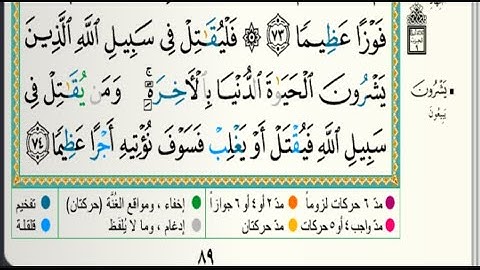 فَوْزًا عَظِيمًا ٧٣ ۞ فَلْيُقَاتِلْ فِى سَبِيلِ اللَّهِ الَّذِينَ
يَشْرُونَ الْحَيَوٰةَ الدُّنْيَا بِالْأَخِرَةِ ۚ وَمَن يُقَاتِلْ فِى
سَبِيلِ اللَّهِ فَيُقْتَلْ أَوْ يَغْلِبْ فَسَوْفَ نُؤْتِيهِ أَجْرًا عَظِيمًا ٧٤
يَشْرُونَ
يَبِيعُونَ
مدّ ٦ حركات لزوماً
مدّ ٢ أو ٤ أو ٦ جوازاً
إخفاء ، ومواقع الغُنَّة (حركتان)
تفخيم
مدّ واجب ٤ أو ٥ حركات
مدّ حركتان
إدغام ، وما لا يُلفَظ
قلقلة
٨٩